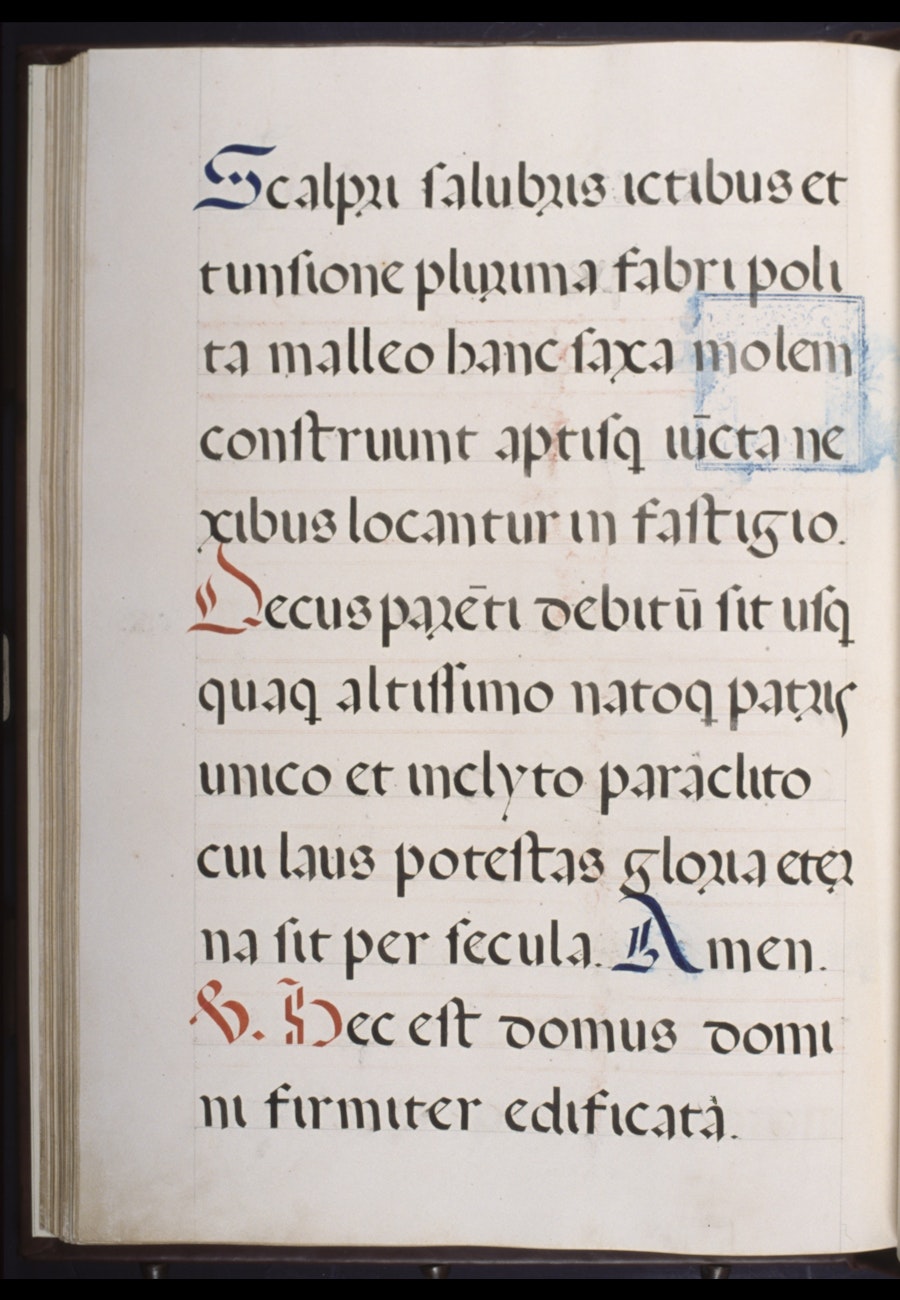 Scalpri ſalubris ictibus et
tunſione plurima fabri poli
ta malleo hanc ſaxa molem
conſtruunt aptiſq iūcta ne
xibus locantur in faſtigio.
Decus parēti debitū ſit uſq
quaq altiſſimo natoq patris
unico et inclyto paraclito
cui laus poteſtas gloria eter
na ſit per ſecula. Amen.
V. Hec eſt domus domi
ni firmiter edificata.